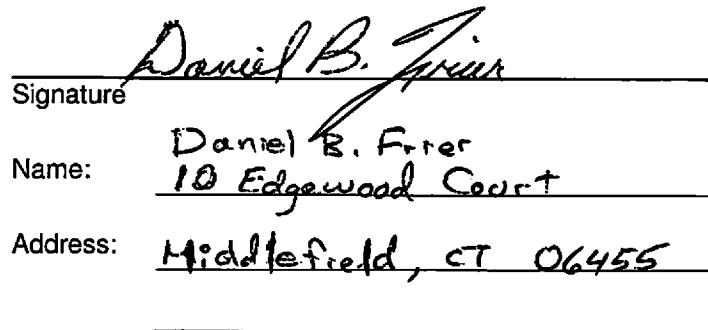 Daniel B. Frier
Signature
Daniel B. Frier
Name: 10 Edgewood Court
Address: Middlefield, CT 06455